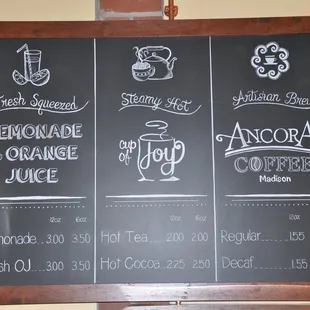 Fresh Squeezed
LEMONADE
& ORANGE
JUICE
12oz 16oz
monade...3.00 3.50
sh OJ...3.00 3.50
Steamy Hot
cup of Joy
12oz 16oz
Hot Tea...2.00 2.00
Hot Cocoa..2.25 2.50
Artisan Brew
ANCORA
COFFEE
Madison
12oz
Regular......1.55
Decaf......1.55